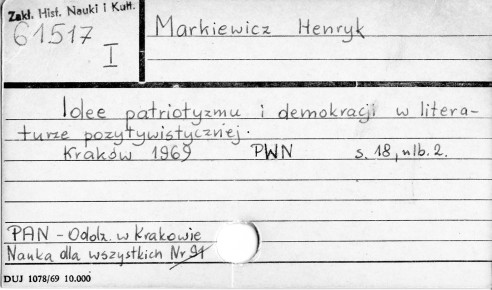 Zakł. Hist. Nauki i Kult.
61517
I
Markiewicz Henryk
Idee patriotyzmu i demokracji w litera-
turze pozytywistycznej.
Kraków 1969 PWN s. 18, nlb. 2.
PAN - Oddz. w Krakowie
Nauka dla wszystkich Nr 91
DUJ 1078/69 10.000